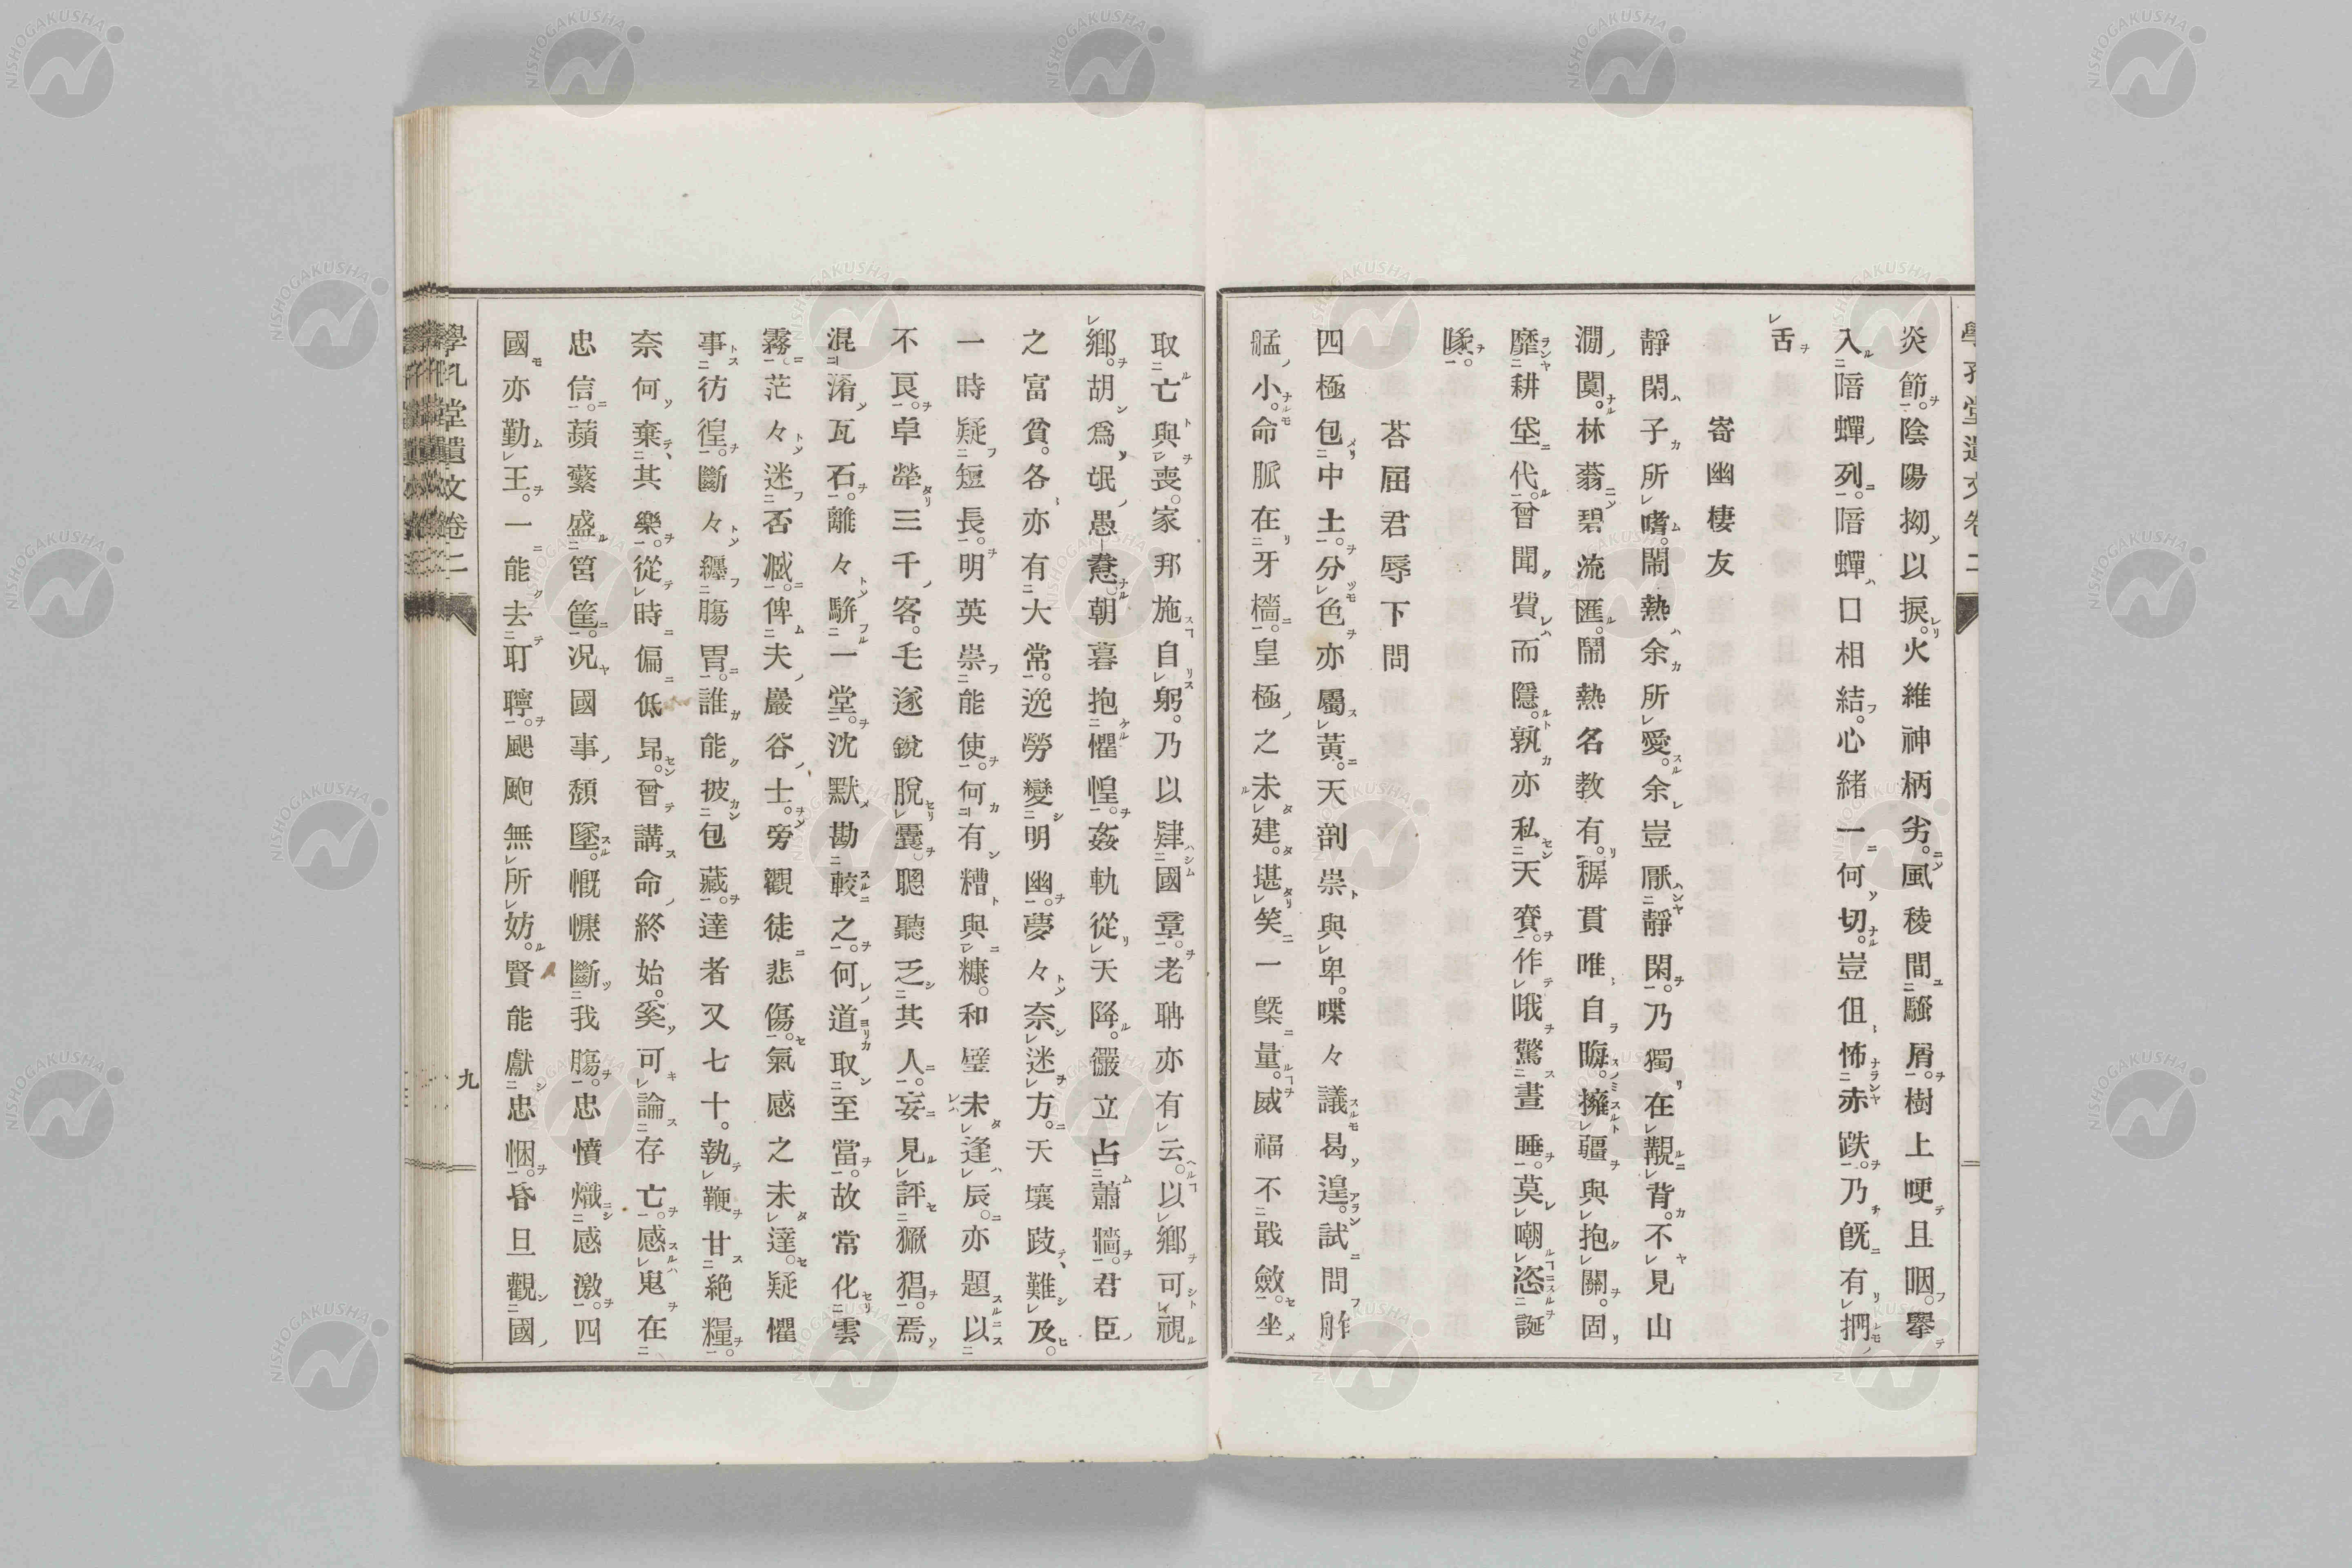 炎節。陰陽拗以捩。火維神柄劣。風稜間騷屑。樹上哽且咽。擧
入暗蟬列。暗蟬口相結。心緒一何切。豈伹怖赤跌。乃旣有捫
舌
寄幽棲友
靜閑子所嗜。閙熱余所愛。余豈厭靜閑。乃獨在覯背。不見山
澗闃。林蓊碧流匯。閙熱名教有。穉貫唯自晦。擁疆與抱關。固
靡耕垡代。曾聞費而隱。孰亦私天賚。作哦驚晝睡。莫嘲恣誕
隊。
荅屈君辱下問
四極包中土。分色亦屬黃。天剖崇與卑。喋々議曷遑。試問舴
艋小。命脈在牙檣。皇極之未建。堪笑一槩量。威福不戢斂。坐
取亡與喪。家邦施自躬。乃以肆國章。老聃亦有云。以鄕可視
鄕。胡爲氓愚惷。朝暮抱懼惶。姦軌從天降。儼立占蕭牆。君臣
之富貧。各亦有大常。逸勞變明幽。夢々奈迷方。天壤歧難及。
一時疑短長。明英崇能使。何有糟與糠。和璧未逢辰。亦題以
不良。卓犖三千客。毛遂銳脫囊。聰聽乏其人。妄見評獗猖。焉
混淆瓦石。離々駢一堂。沈默勘較之。何道取至當。故常化雲
霧。茫々迷否臧。俾夫巖谷士。旁觀徒悲傷。氣感之未達。疑懼
事彷徨。斷々纒腸胃。誰能披包藏。達者又七十。執鞭甘絶糧。
奈何棄其樂。從時偏低昻。曾講命終始。奚可論存亡。感鬼在
忠信。蘋蘩盛筥筐。況國事頽墜。慨慷斷我腸。忠憤熾感激。四
國亦勤王。一能去耵聹。颸颸無所妨。賢能獻忠悃。昏旦觀國
學孔堂遺文卷二
九